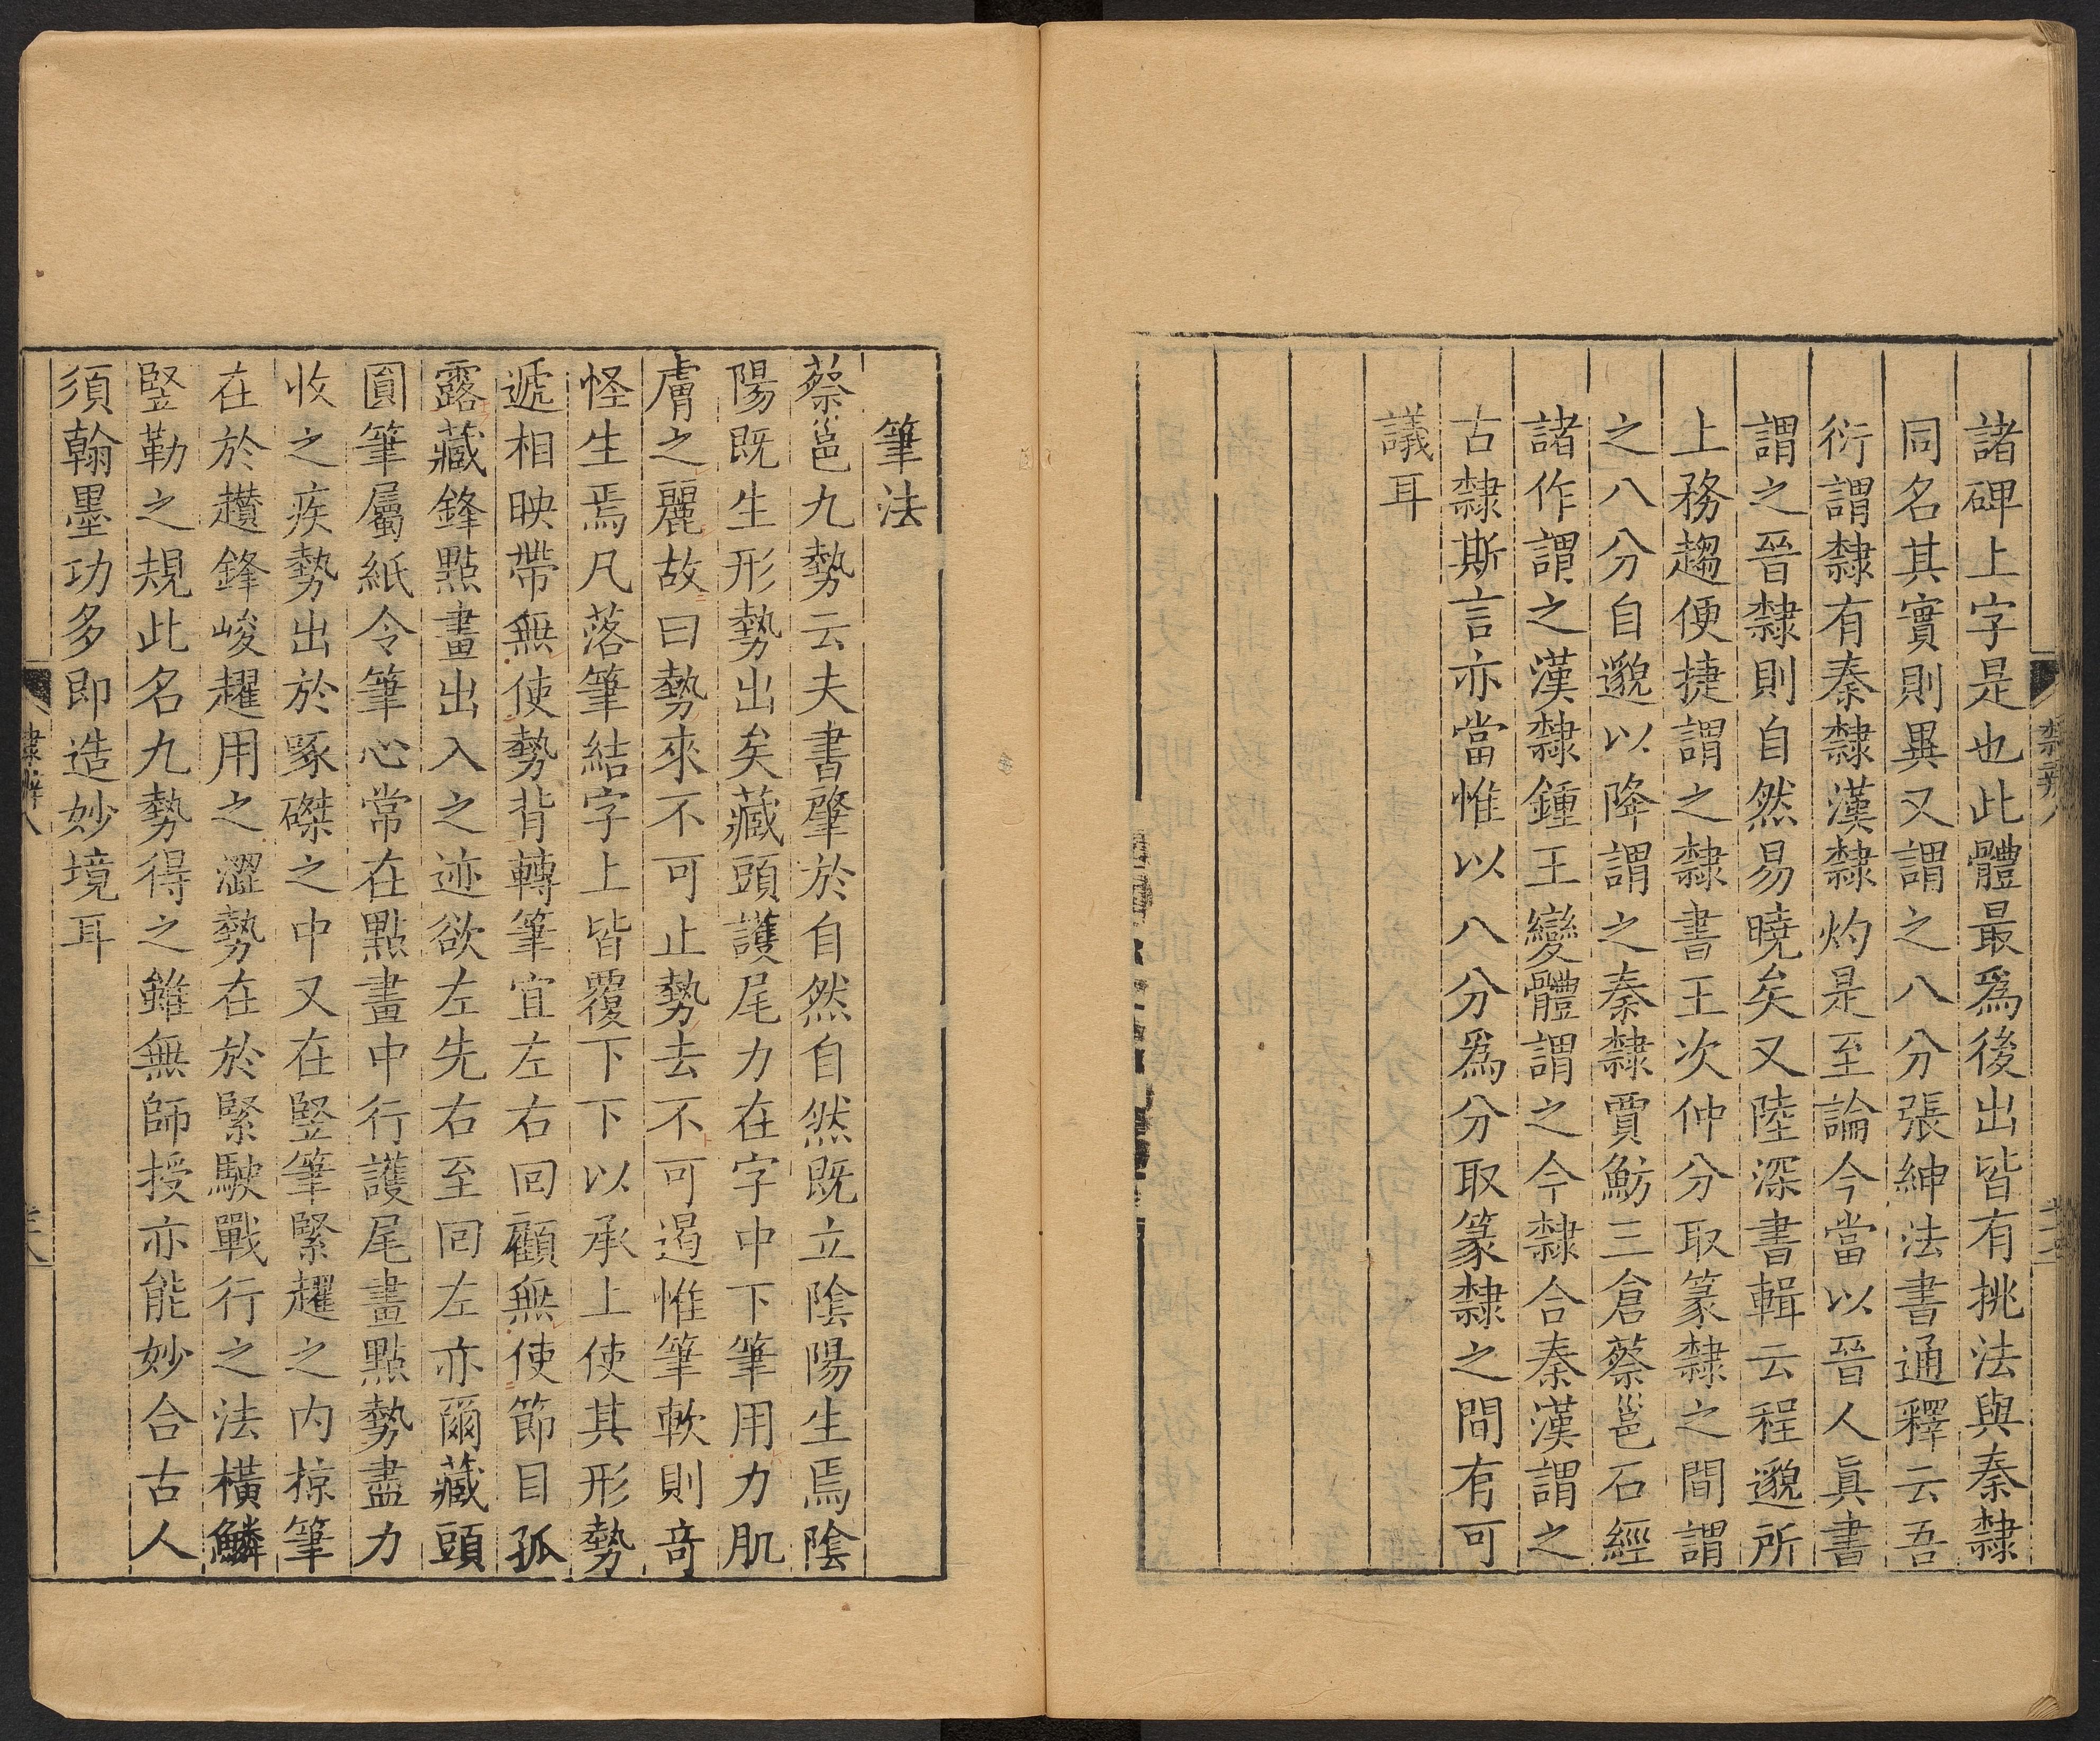 諸碑上字是也此體最爲後出皆有挑法與秦隸
同名其實則異又謂之八分張紳法書通釋云吾
衍謂隸有秦隸漢隸灼是至論今當以晉人眞書
謂之晉隸則自然易曉矣又陸深書輯云程邈所
上務趨便捷謂之隸書王次仲分取篆隸之間謂
之八分自邈以降謂之秦隸賈魴三倉蔡邕石經
諸作謂之漢隸鍾王變體謂之今隸合秦漢謂之
古隸斯言亦當惟以八分爲分取篆隸之間有可
議耳
筆法
蔡邕九勢云夫書肇於自然自然既立陰陽生焉陰
陽既生形勢出矣藏頭護尾力在字中下筆用力肌
膚之麗故曰勢來不可止勢去不可遏惟筆軟則竒
怪生焉凡落筆結字上皆覆下下以承上使其形勢
遞相映帶無使勢背轉筆宜左右回顧無使節目孤
露藏鋒點畫出入之迹欲左先右至回左亦爾藏頭
圓筆屬紙令筆心常在點畫中行護尾畫點勢盡力
收之疾勢出於啄磔之中又在竪筆緊趯之内掠筆
在於趲鋒峻趯用之澀勢在於緊駃戰行之法橫鱗
竪勒之規此名九勢得之雖無師授亦能妙合古人
須翰墨功多即造妙境耳
隸辨八